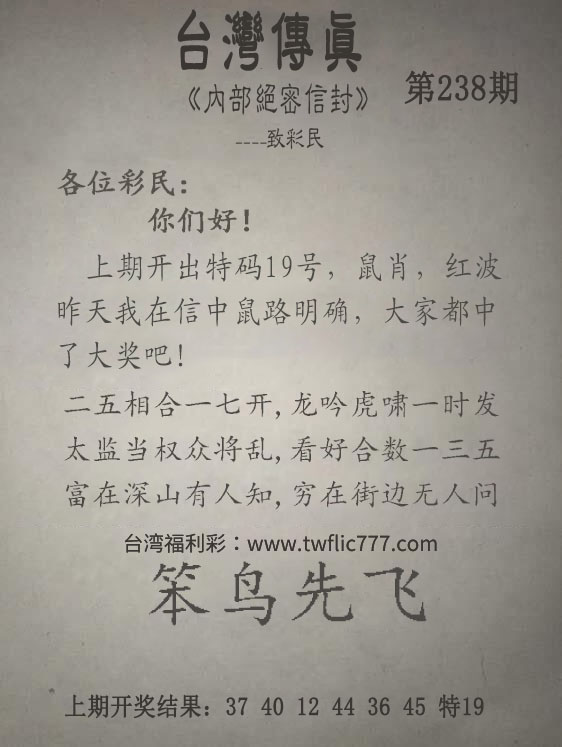 台灣傳眞
《內部絕密信封》 第238期
----致彩民
各位彩民：
你们好！
上期开出特码19号，鼠肖，红波
昨天我在信中鼠路明确，大家都中
了大奖吧！
二五相合一七开,龙吟虎啸一时发
太监当权众将乱,看好合数一三五
富在深山有人知,穷在街边无人问
台湾福利彩：www.twflic777.com
笨鸟先飞
上期开奖结果：37 40 12 44 36 45 特19